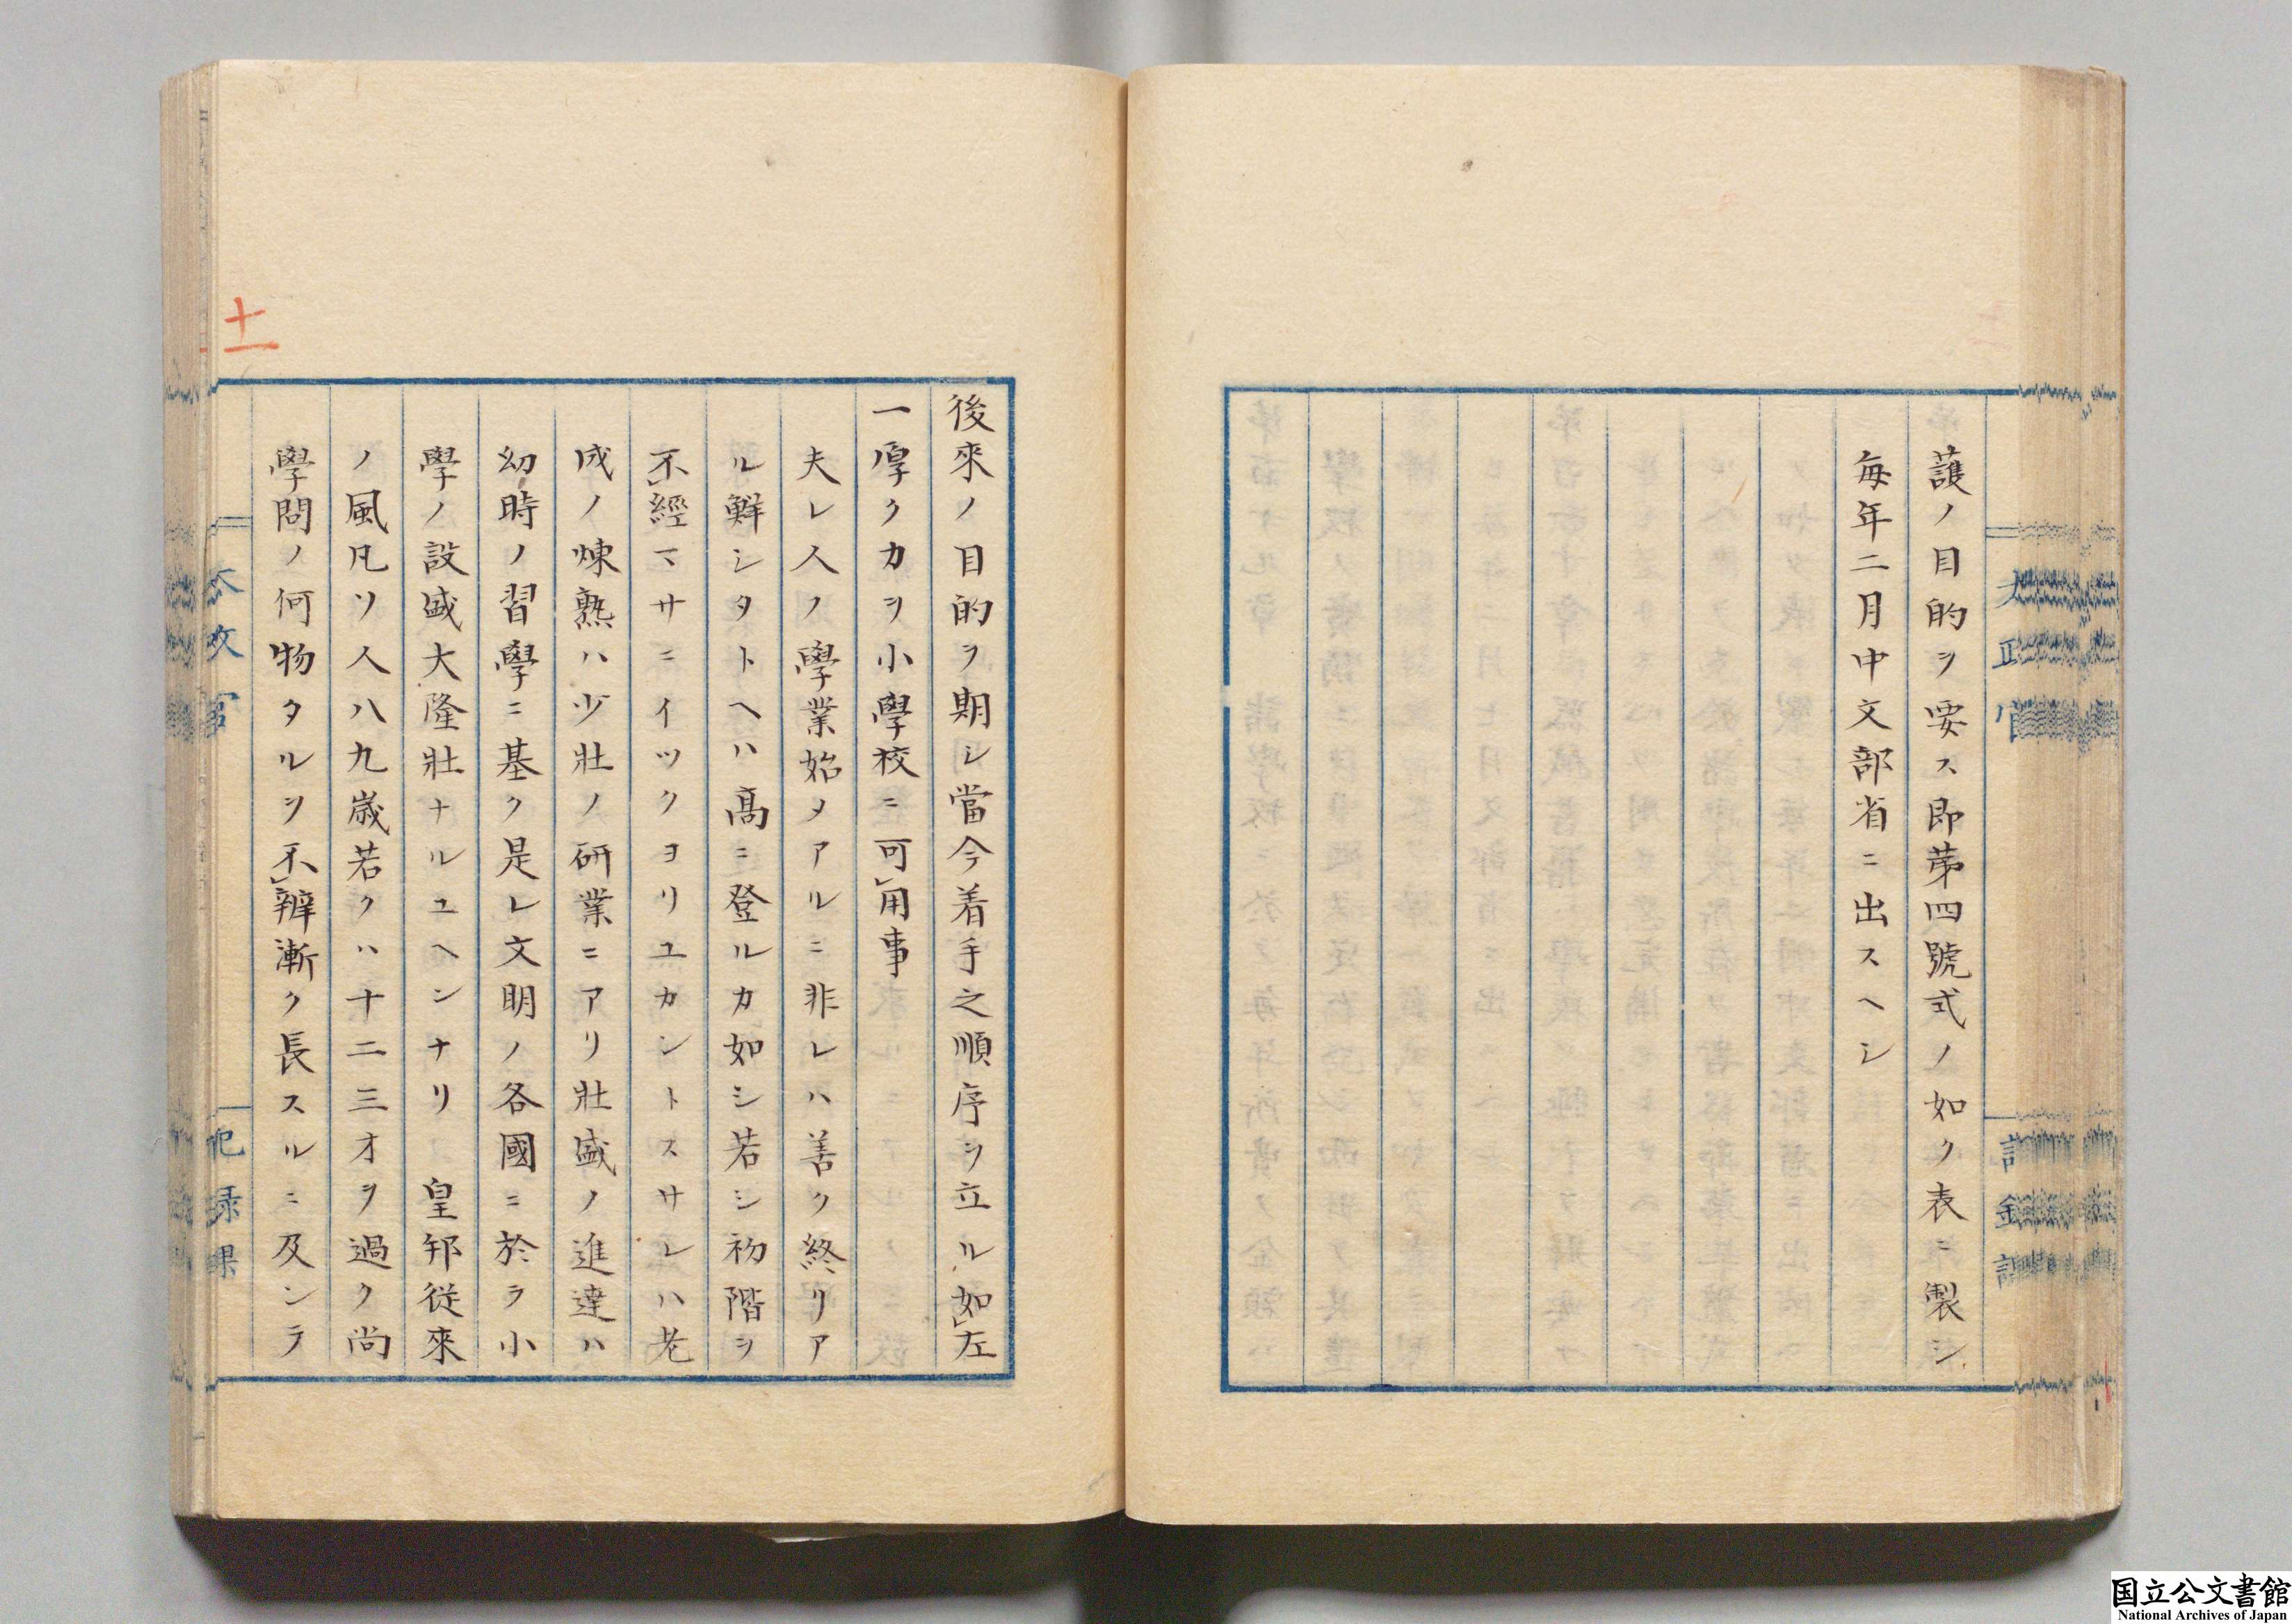 護ノ目的ヲ要ス即第四號式ノ如ク表ニ製シ
毎年二月中文部省ニ出スヘシ
後來ノ目的ヲ期シ當今着手之順序ヲ立ル如左
一厚ク力ヲ小學校ニ可用事
夫レ人ノ學業始メアルニ非レハ善ク終リア
ル鮮シタトヘハ高ニ登ルカ如シ若シ初階ヲ
不經マサニイツクヨリユカントスサレハ老
成ノ煉熟ハ少壯ノ研業ニアリ壯盛ノ進達ハ
幼時ノ習學ニ基ク是レ文明ノ各國ニ於ラ小
學ノ設盛大隆壯ナルユヘンナリ 皇邦従來
ノ風凡ソ人八九歳若クハ十二三才ヲ過ク尚
學問ノ何物タルヲ不辨漸ク長スルニ及ンテ
十一
太政官
記録課
国立公文書館
National Archives of Japan